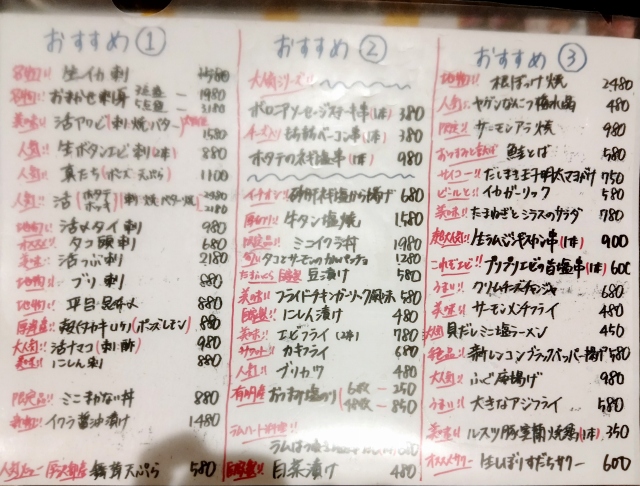 おすすめ①
生イカ刺 1580
おまかせ刺身 3点盛 ー 1980
5点盛 ー 3180
美味!! 活アワビ(刺・焼・バター) 1580
人気!! 生ボタンエビ刺(1本) 880
人気!! 真たち(ポン酢・天ぷら) 1100
人気!! 活(ホタテ ホッキ)(刺・焼・バター焼) 2180
地物!! 活〆タイ刺 980
タコ頭刺 680
美味!! 活つぶ刺 2180
地物!! ブリ刺 880
地物!! 平目昆布〆 880
殻付カキ(1ケ)(ポン酢・レモン)
大人気!! 活ナマコ(刺・酢) 980
美味!! にしん刺 880
限定品!! ミニまかない丼 880
イクラ醤油漬け 1480
舞茸天ぷら 580
おすすめ②
大人気シリーズ!!
ボロニアソーセージステーキ串(1本) 380
ベーコン串(1本) 380
ホタテのネギ塩串(1本) 980
イチオシ!! 砂肝ネギ塩から揚げ 680
厚切り!! 牛タン塩焼 1580
限定品!! ミニイクラ丼 1980
旬!! タコとサーモンのカルパッチョ 1280
自家製!! 豆漬け 580
美味!! フライドチキンガーリック風味 580
自家製!! にしん漬け 480
美味!! エビフライ(2本) 780
サクット!! カキフライ 680
人気!! ブリカツ 480
有明産 おつまみ塩のり(6枚 ー 250
48枚 ー 850
自家製!! 白菜漬け 480
おすすめ③
地物!! 根ぼっけ焼 2480
人気!! ヤゲンなんこつ梅水晶 480
限定!! サーモンアラ焼 980
鮭とば 580
サイコー!! だしまき玉子明太マヨがけ 750
ビールと!! イカガーリック 580
美味!! たまねぎとシラスのサラダ 780
超人気!! 生ラムジンギスカン串(1本) 900
これぞエビ!! プリプリエビの旨塩串(1本) 600
うまい!! クリームチーズチャンジャ 680
美味!! サーモンメンチフライ 480
貝だしミニ塩ラーメン 450
絶品!! 新レンコンブラックペッパー揚げ 580
大人気!! ふぐ唐揚げ 980
うまい!! 大きなアジフライ 580
美味!! ルスツ豚室蘭焼鳥(1本) 350
オススメサワー 生しぼりすだちサワー 600